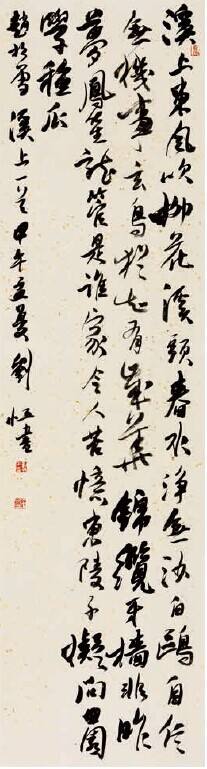 溪上東風吹柳花溪頭春水淨無沙白鷗自信
無機事玄鳥猶知有歲華錦纜牙檣非昨
夢鳳笙龍管是誰家令人苦憶東陵子擬問田園
學種瓜
趙松雪溪上一首甲午立夏劉恒書